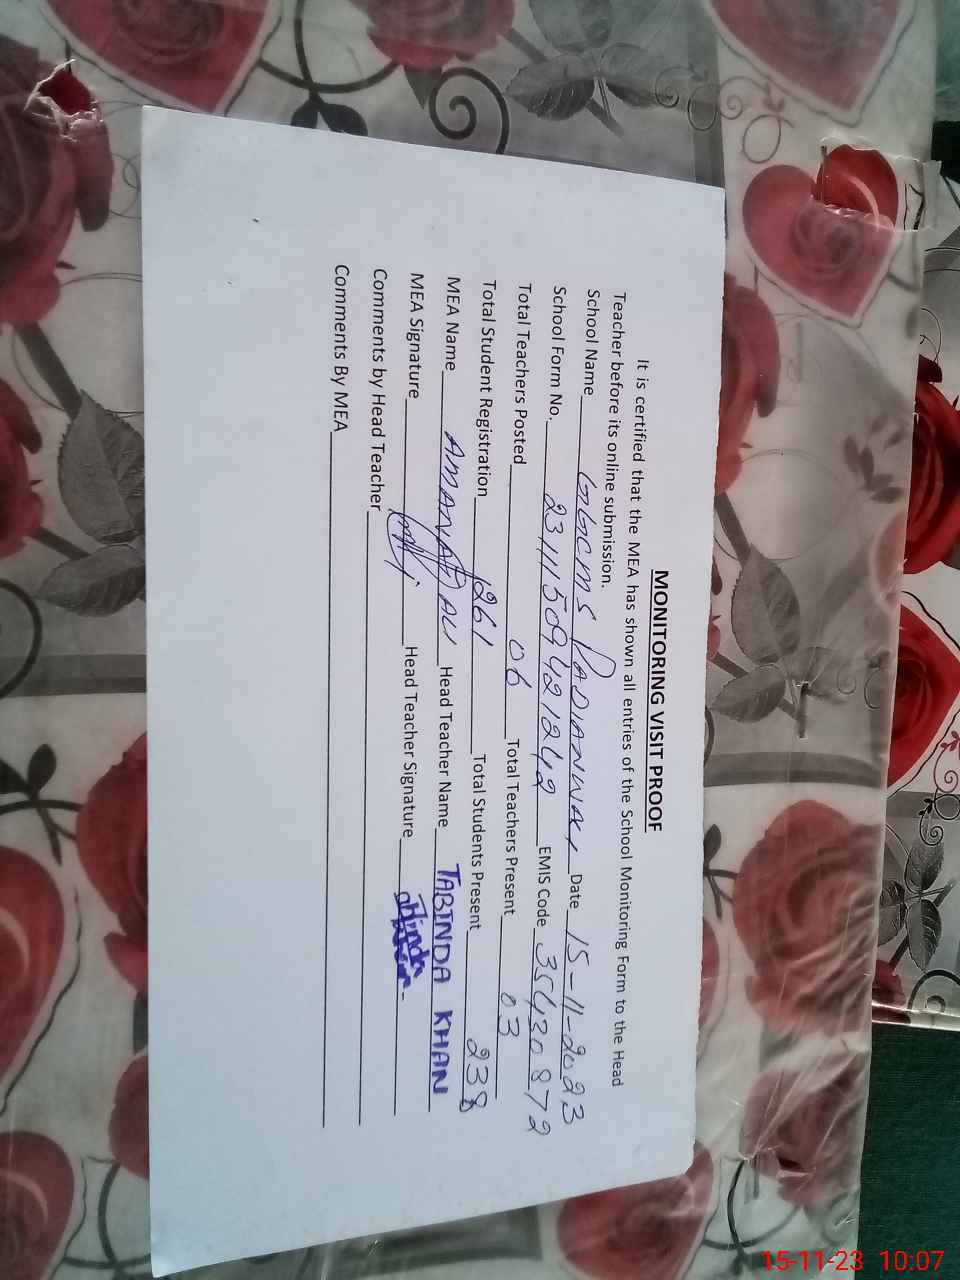 MONITORING VISIT PROOF
It is certified that the MEA has shown all entries of the School Monitoring Form to the Head
Teacher before its online submission.
School Name GGCMS PADIANWALI Date 15-11-2023
School Form No. 23111509421242 EMIS Code 35430872
Total Teachers Posted 06 Total Teachers Present 03
Total Student Registration 261 Total Students Present 238
MEA Name AMANAT ALI Head Teacher Name TABINDA KHAN
MEA Signature Head Teacher Signature
Comments by Head Teacher
Comments By MEA
15-11-23 10:07